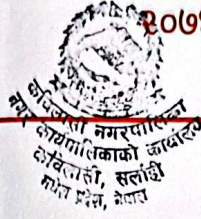 २०७
कविलासी नगरपालिका
नगर कार्यपालिकाको कार्यालय
कविलासी, सर्लाही
मधेश प्रदेश, नेपाल